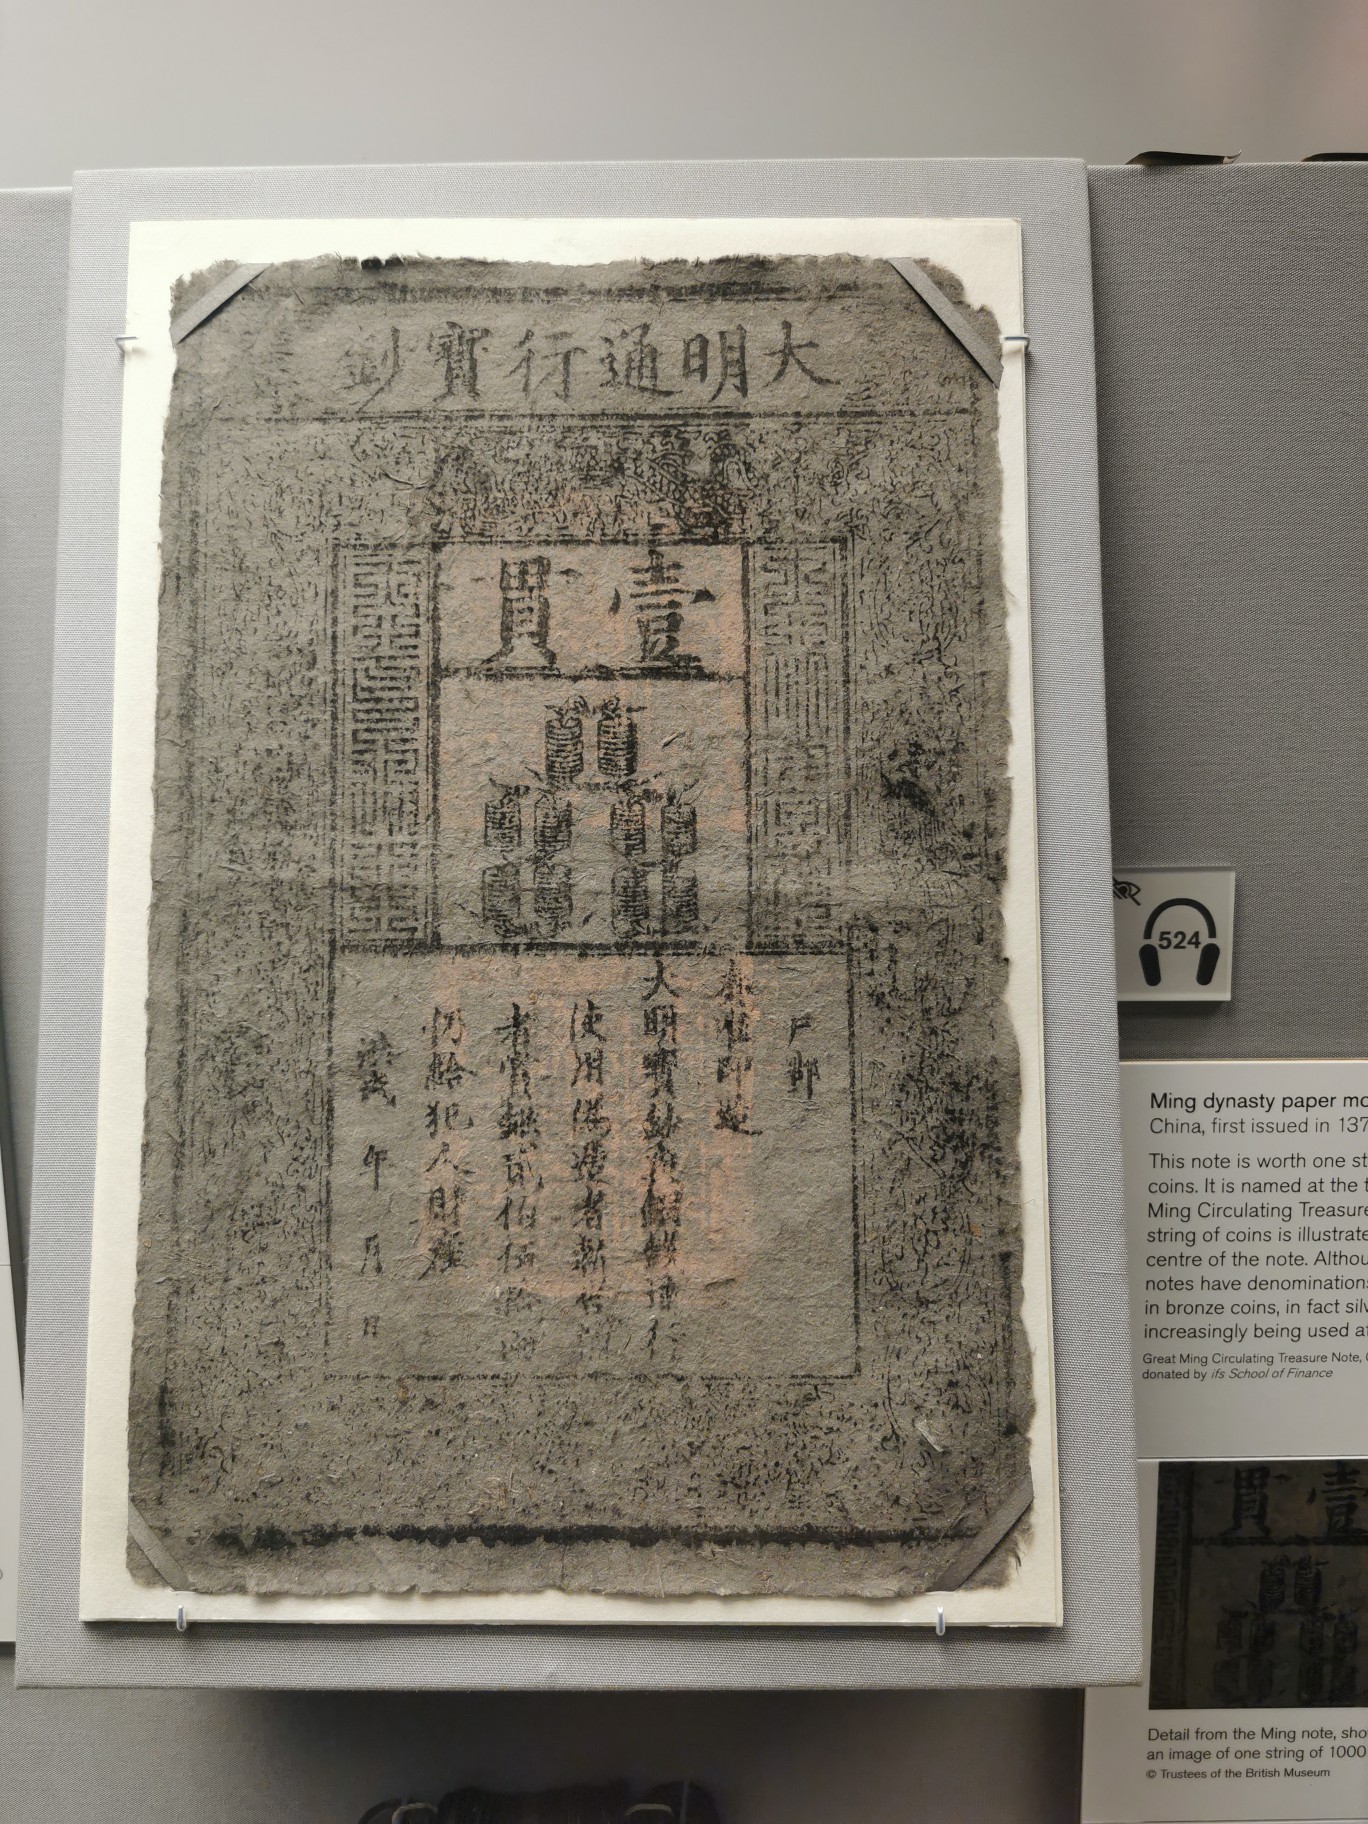 大明通行寶鈔
壹貫
戶部
奏准印造
大明寶鈔與銅錢通行
使用偽造者斬告
者賞銀貳伯伍拾兩
仍給犯人財產
洪武 年 月 日
524
Ming dynasty paper
China, first issued in 137
This note is worth one
coins. It is named at the
Ming Circulating Treasure
string of coins is
centre of the note.
notes have denominations
in bronze coins, in fact
increasingly being used
Great Ming Circulating Treasure Note,
donated by ifs School of Finance
壹貫
Detail from the Ming note,
an image of one string of 1000
© Trustees of the British Museum